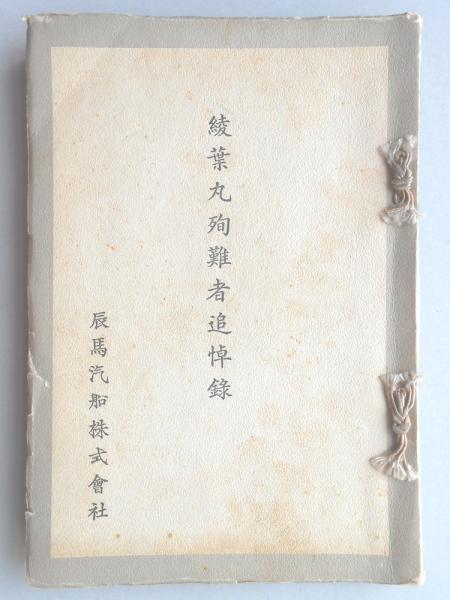 綾葉丸殉難者追悼錄
辰馬汽船株式會社